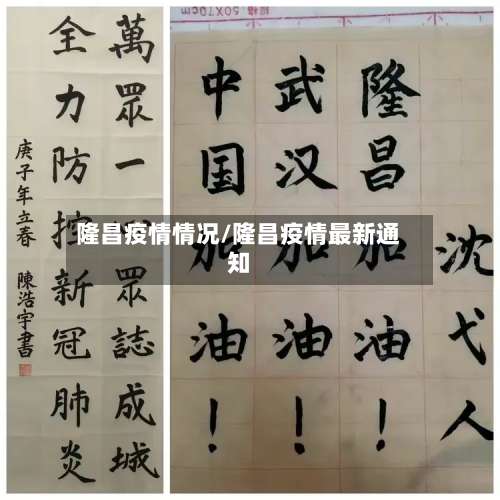 萬眾一眾誌成城
全力防控新冠肺炎
庚子年立春 陳浩宇書
隆昌疫情情况/隆昌疫情最新通
知
50X70cm
隆昌加油！
武汉加油！
中国加油！
沈弋人